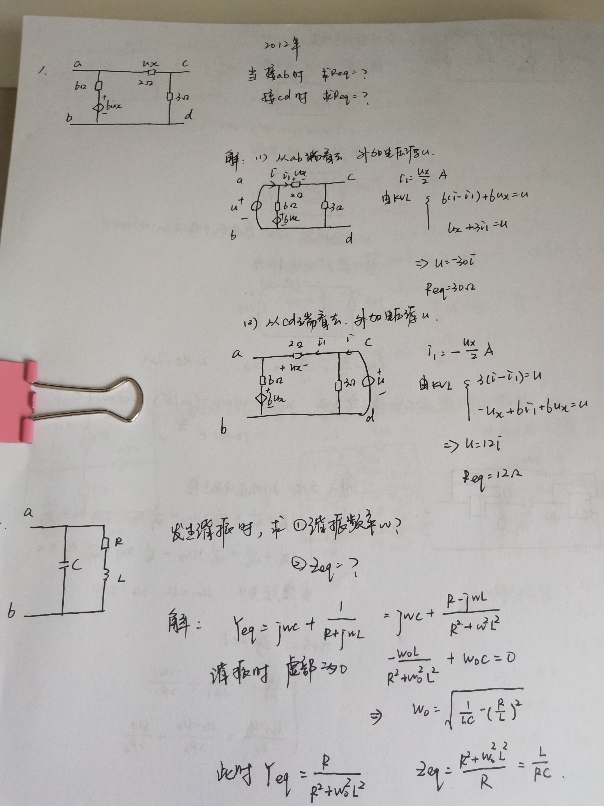 2012年
1.
a ux c
6Ω 2Ω
+ 6ux - 3Ω
b d
当接ab时 求Req=?
接cd时 求Req=?
解: (1) 从ab端看去, 外加电压源u.
a i i₁ ux c
2Ω
u + - 6Ω 3Ω
+ 6ux -
b d
i₁=ux/2 A
由KVL { 6(i-i₁)+6ux=u
ux+3i₁=u
=> u=-30i
Req=30Ω
(2) 从cd端看去, 外加电压源u.
a 2Ω i₁ i c
+ ux -
6Ω 3Ω + u -
+ 6ux
b d
i₁=-ux/2 A
由KVL { 3(i-i₁)=u
-ux+6i₁+6ux=u
=> u=12i
Req=12Ω
a
C R
L
b
发生谐振时, 求 ①谐振频率w?
②Zeq=?
解: Yeq=jwc+1/(R+jwL) =jwc+(R-jwL)/(R²+w²L²)
谐振时 虚部为0 -w₀L/(R²+w₀²L²)+w₀C=0
=> w₀=√(1/LC-(R/L)²)
此时 Yeq=R/(R²+w₀²L²) Zeq=(R²+w₀²L²)/R=L/RC.